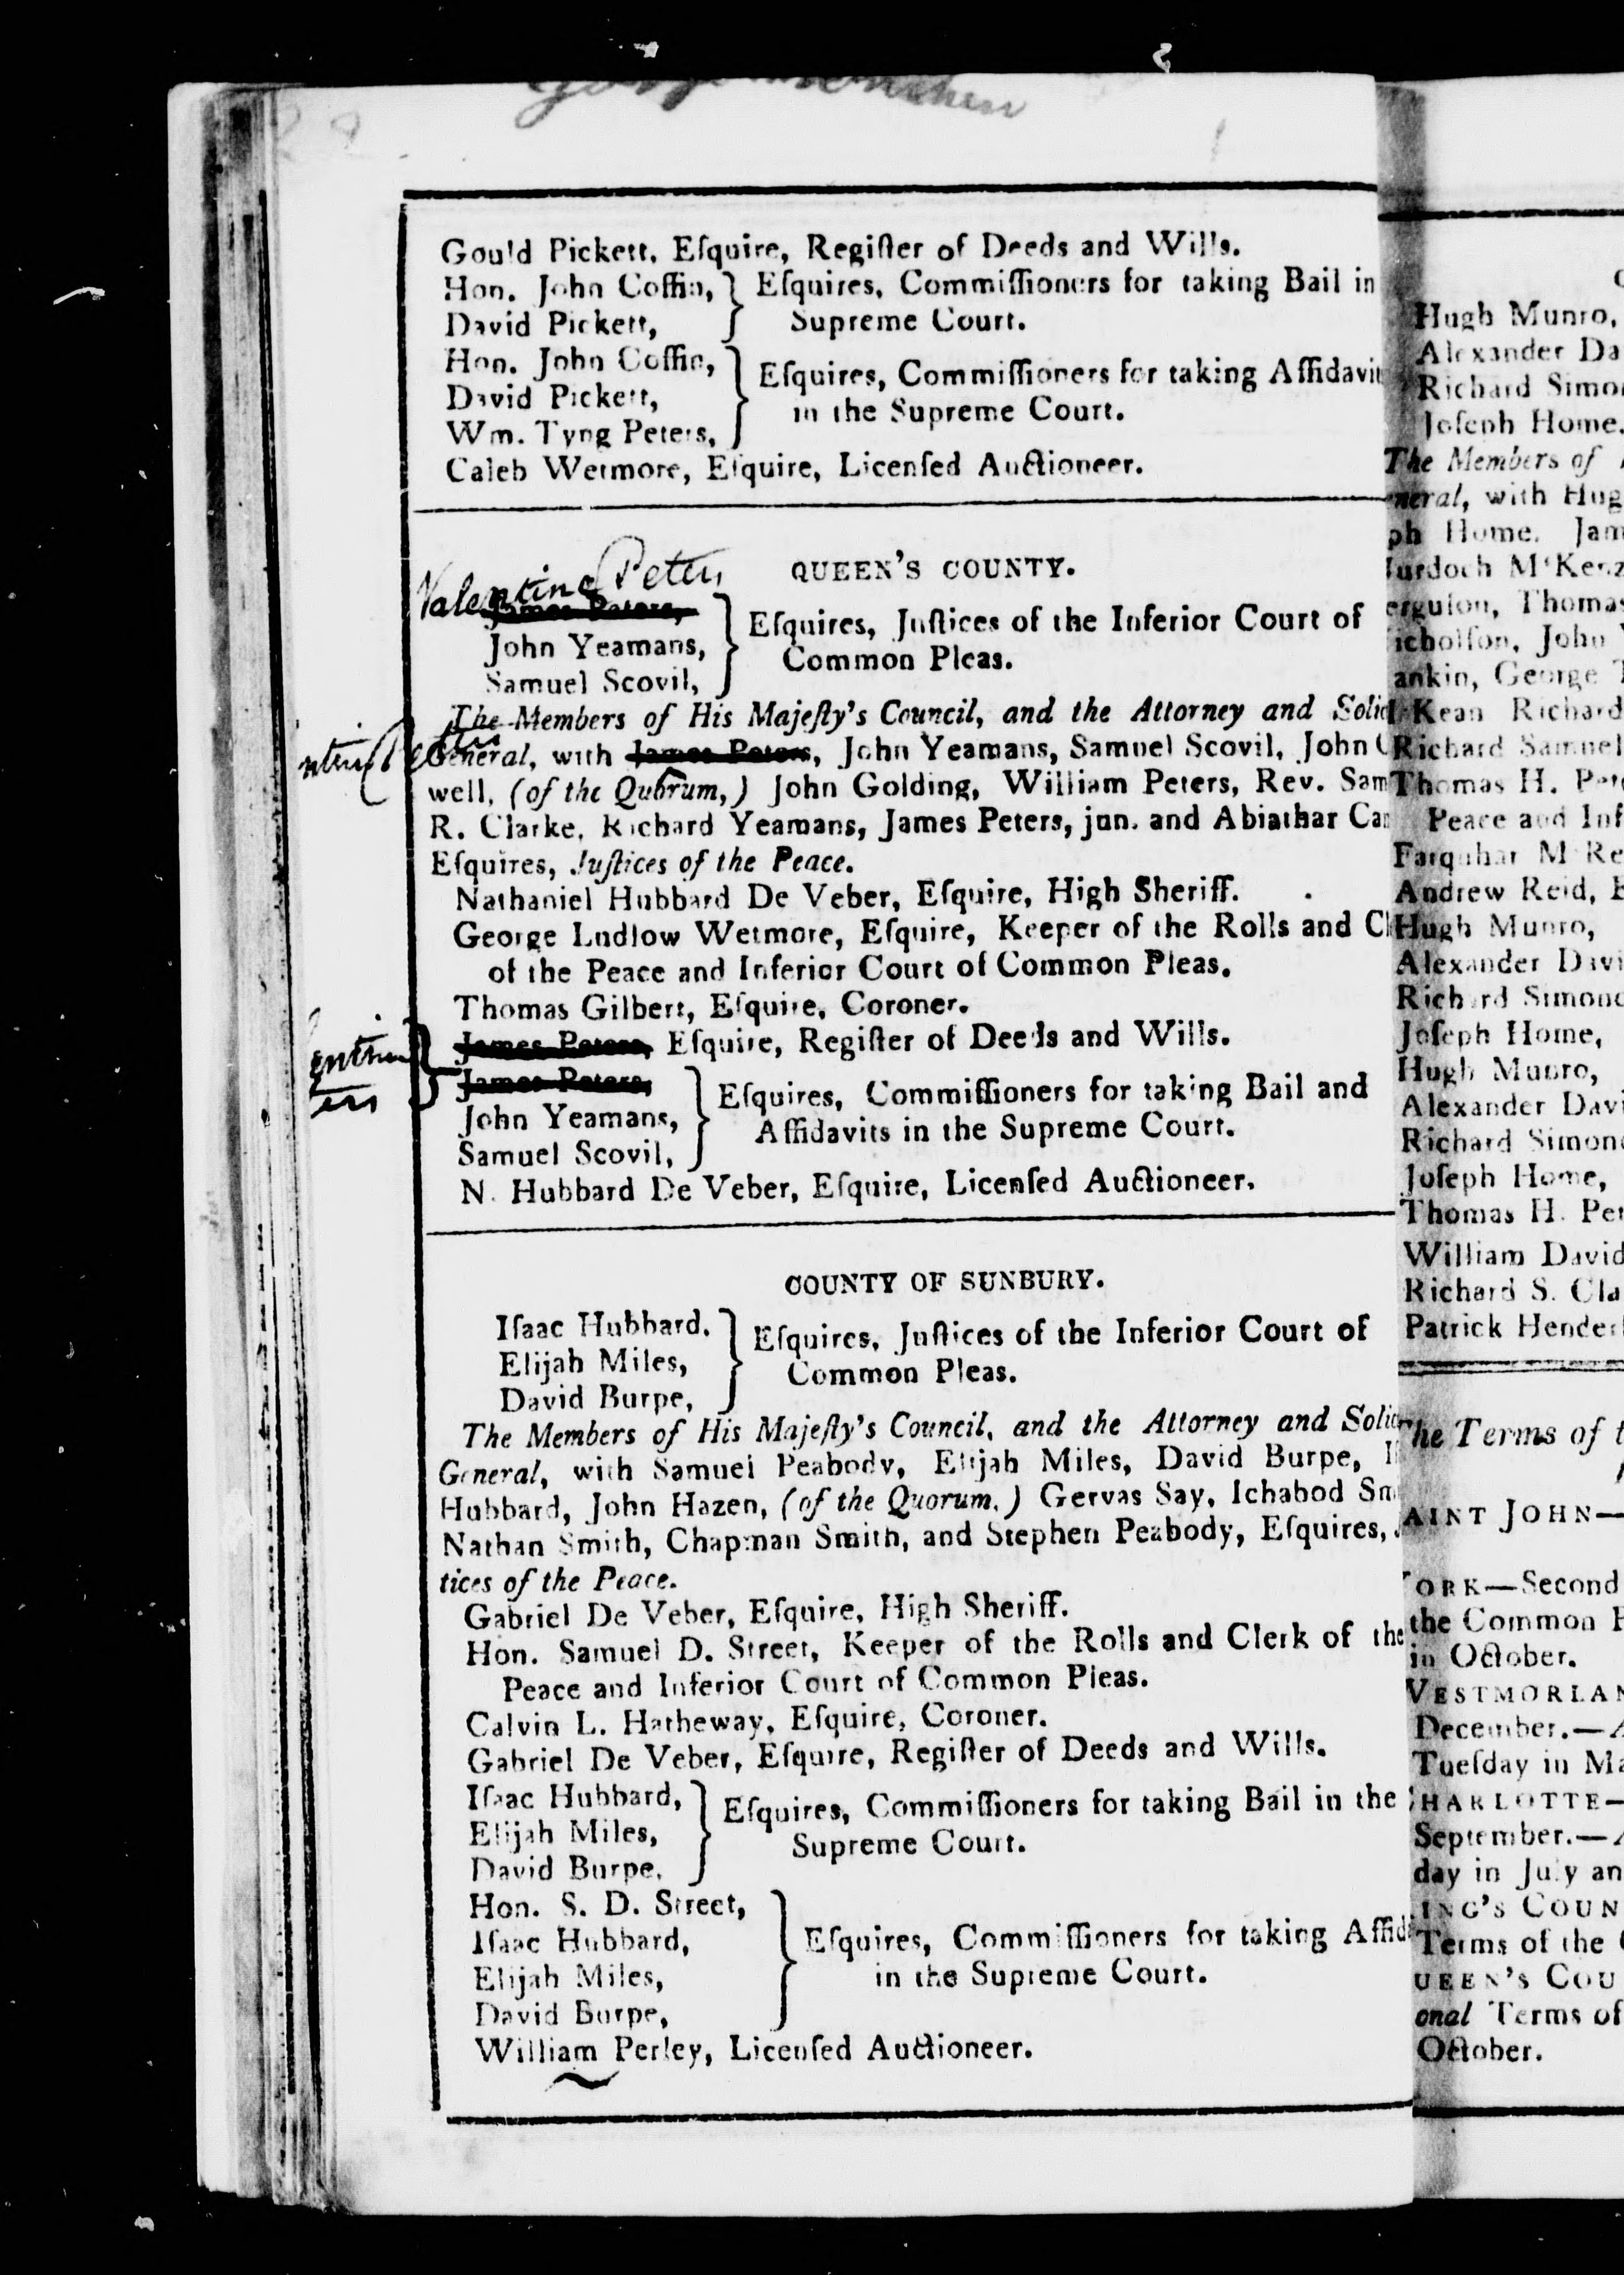 Gould Pickett, Eſquire, Regiſter of Deeds and Wills.
Hon. John Coffin, } Eſquires, Commiſſioners for taking Bail in
David Pickett, Supreme Court.
Hon. John Coffin,
David Pickett, } Eſquires, Commiſſioners for taking Affidavit
Wm. Tyng Peters, in the Supreme Court.
Caleb Wetmore, Eſquire, Licenſed Auctioneer.
QUEEN'S COUNTY.
Valentine Peters
James Peters,
John Yeamans, } Eſquires, Juſtices of the Inferior Court of
Samuel Scovil, Common Pleas.
The Members of His Majeſty's Council, and the Attorney and Solic
General, with James Peters, John Yeamans, Samuel Scovil, John
well, (of the Quorum,) John Golding, William Peters, Rev. Sam
R. Clarke, Richard Yeamans, James Peters, jun. and Abiathar Ca
Eſquires, Juſtices of the Peace.
Nathaniel Hubbard De Veber, Eſquire, High Sheriff.
George Ludlow Wetmore, Eſquire, Keeper of the Rolls and Cl
of the Peace and Inferior Court of Common Pleas.
Thomas Gilbert, Eſquire, Coroner.
James Peters, Eſquire, Regiſter of Deeds and Wills.
James Peters,
John Yeamans, } Eſquires, Commiſſioners for taking Bail and
Samuel Scovil, Affidavits in the Supreme Court.
N. Hubbard De Veber, Eſquire, Licenſed Auctioneer.
COUNTY OF SUNBURY.
Iſaac Hubbard,
Elijah Miles, } Eſquires, Juſtices of the Inferior Court of
David Burpe, Common Pleas.
The Members of His Majeſty's Council, and the Attorney and Solic
General, with Samuel Peabody, Elijah Miles, David Burpe, I
Hubbard, John Hazen, (of the Quorum,) Gervas Say, Ichabod Sm
Nathan Smith, Chapman Smith, and Stephen Peabody, Eſquires,
tices of the Peace.
Gabriel De Veber, Eſquire, High Sheriff.
Hon. Samuel D. Street, Keeper of the Rolls and Clerk of the
Peace and Inferior Court of Common Pleas.
Calvin L. Hatheway, Eſquire, Coroner.
Gabriel De Veber, Eſquire, Regiſter of Deeds and Wills.
Iſaac Hubbard,
Elijah Miles, } Eſquires, Commiſſioners for taking Bail in the
David Burpe, Supreme Court.
Hon. S. D. Street,
Iſaac Hubbard, } Eſquires, Commiſſioners for taking Affid
Elijah Miles, in the Supreme Court.
David Burpe,
William Perley, Licenſed Auctioneer.
Hugh Munro,
Alexander Da
Richard Simo
Joſeph Home.
The Members of
neral, with Hug
ph Home. Jam
urdoch M'Kenz
erguſon, Thomas
icholſon, John
ankin, George
Kean Richard
Richard Samuel
Thomas H. Pet
Peace and Inf
Farquhar M'Re
Andrew Reid, E
Hugh Munro,
Alexander Davi
Richard Simond
Joſeph Home,
Hugh Munro,
Alexander Davi
Richard Simon
Joſeph Home,
Thomas H. Pet
William David
Richard S. Cla
Patrick Hender
he Terms of t
AINT JOHN—
ORK—Second
the Common P
in October.
VESTMORLAN
December.—A
Tueſday in Ma
HARLOTTE—
September.—A
day in July an
ING'S COUN
Terms of the
UEEN'S COU
onal Terms of
October.